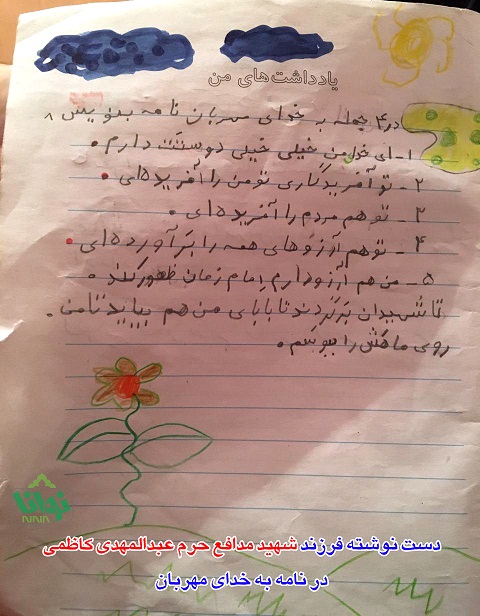 یادداشت‌های من
در ۴ جمله به خدای مهربان نامه بنویس ۸
۱- ای خدا من خیلی خیلی دوستت دارم.
۲- تو آفریدگاری تو من را آفریده‌ای.
۳- تو هم مردم را آفریده‌ای.
۴- تو هم آرزوهای همه را برآورده‌ای.
۵- من هم آرزو دارم امام زمان ظهور کند.
تا شهیدان برگردند تا بابای من هم بیاید تا من.
روی ماهش را ببوسم.
نودانا
دست نوشته فرزند شهید مدافع حرم عبدالمهدی کاظمی
در نامه به خدای مهربان